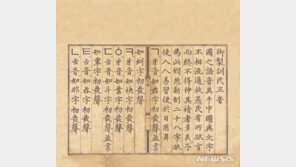 御製訓民正音
國之語音異乎中國與文字
不相流通故愚民有所欲言
而終不得伸其情者多矣予
為此憫然新制二十八字欲
使人人易習便於日用耳
ㄱ牙音如君字初發聲
並書如虯字初發聲
ㅋ牙音如快字初發聲
ㆁ牙音如業字初發聲
ㄷ舌音如斗字初發聲
並書如覃字初發聲
ㅌ舌音如呑字初發聲
ㄴ舌音如那字初發聲
NEWSIS